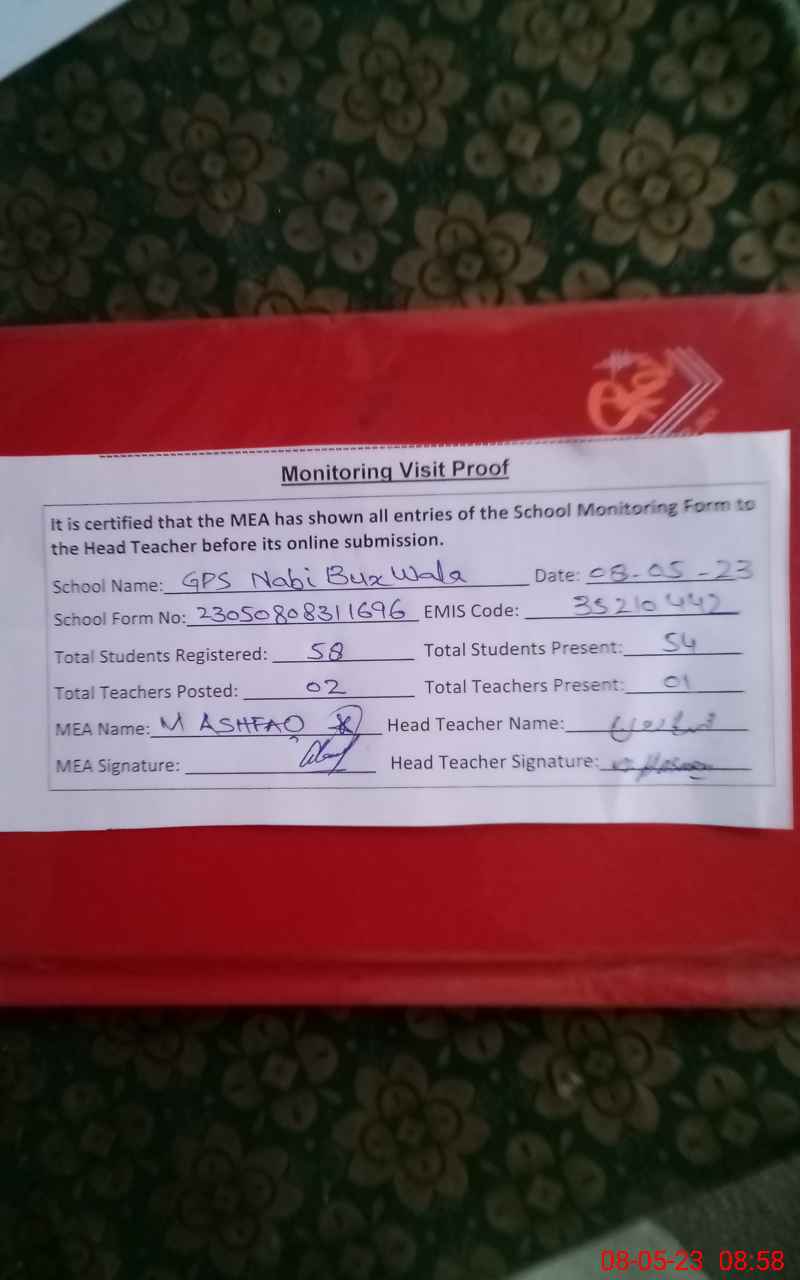 Monitoring Visit Proof
It is certified that the MEA has shown all entries of the School Monitoring Form to
the Head Teacher before its online submission.
School Name: GPS Nabi Bux Wala Date: 08-05-23
School Form No: 23050808311696 EMIS Code: 35210442
Total Students Registered: 58 Total Students Present: 54
Total Teachers Posted: 02 Total Teachers Present: 01
MEA Name: M ASHFAQ Head Teacher Name:
MEA Signature: Head Teacher Signature:
08-05-23 08:58